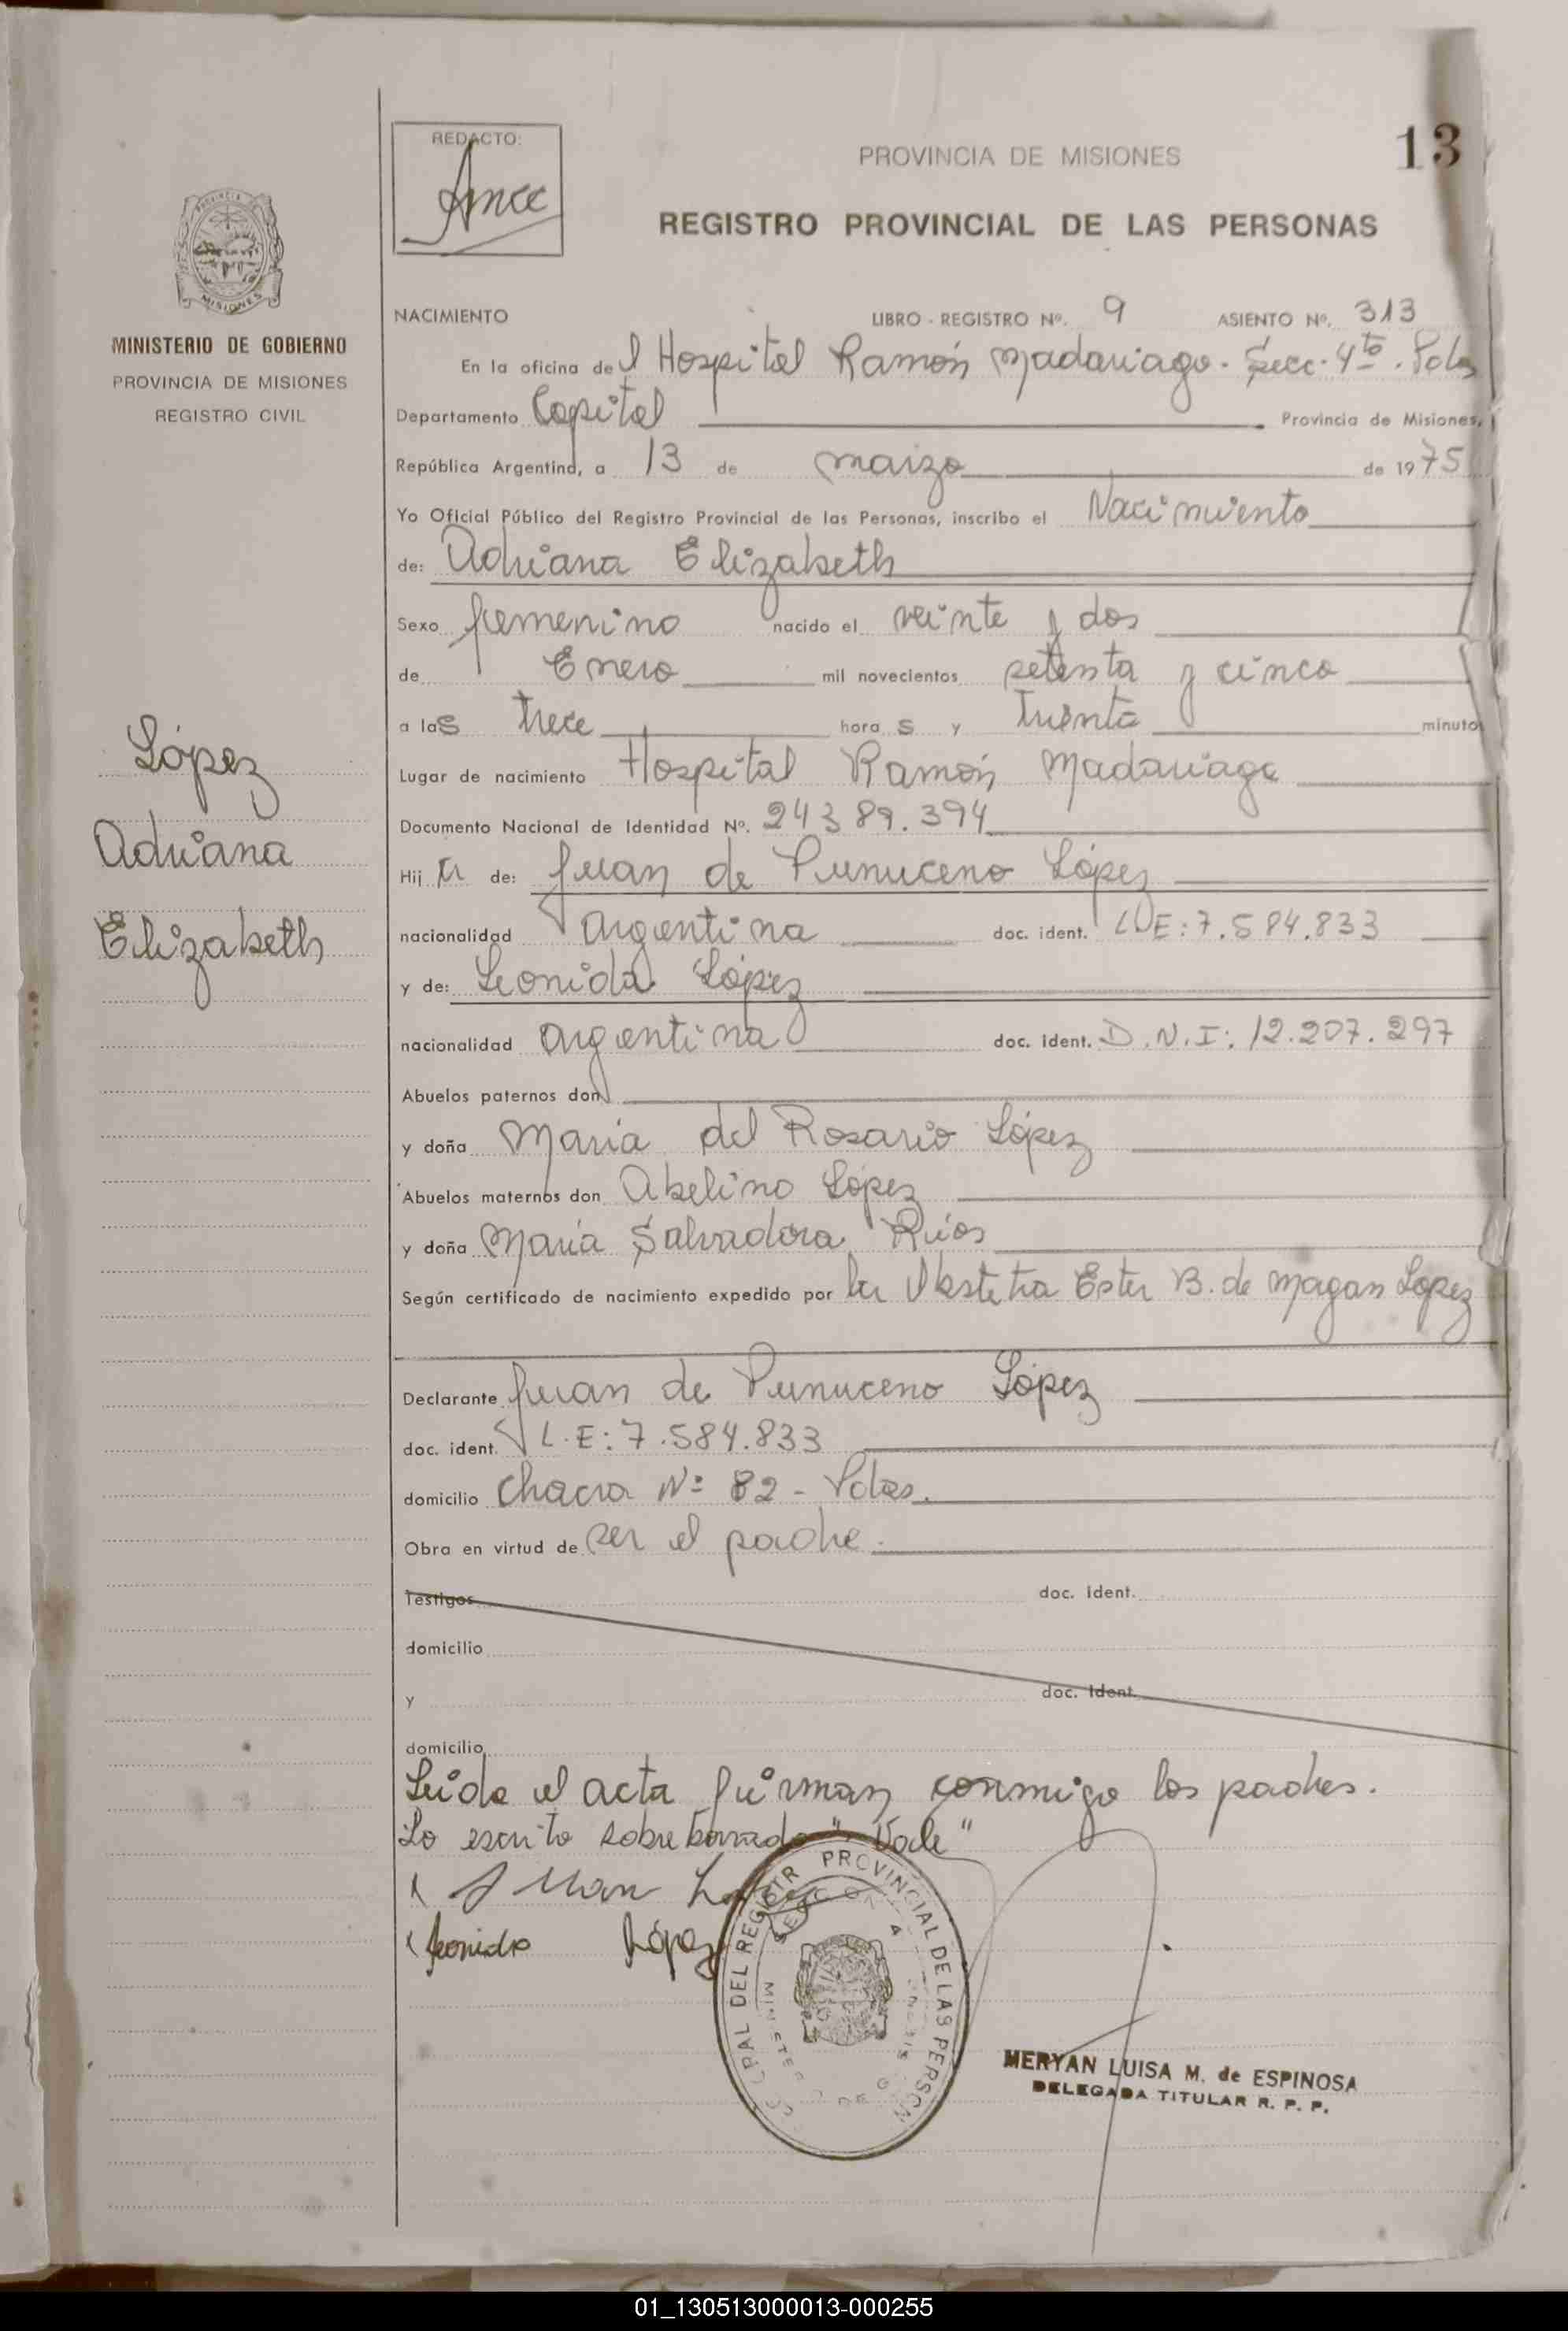 REDACTO:
PROVINCIA DE MISIONES
13
REGISTRO PROVINCIAL DE LAS PERSONAS
MISIONES
MINISTERIO DE GOBIERNO
PROVINCIA DE MISIONES
REGISTRO CIVIL
NACIMIENTO LIBRO - REGISTRO Nº. 9 ASIENTO Nº. 313
En la oficina de l Hospital Ramón Madariaga - Secc. 4ta. Pdas
Departamento Capital Provincia de Misiones,
República Argentina, a 13 de marzo de 1975
Yo Oficial Público del Registro Provincial de las Personas, inscribo el Nacimiento
de: Adriana Elizabeth
Sexo femenino nacido el veinte y dos
de Enero mil novecientos setenta y cinco
a las trece horas y treinta minutos
Lugar de nacimiento Hospital Ramón Madariaga
Documento Nacional de Identidad Nº. 24389.394
López
Adriana
Elizabeth
Hij a de: Juan de Punuceno López
nacionalidad Argentina doc. ident. L.E: 7.584.833
y de: Leonida López
nacionalidad Argentina doc. ident. D.N.I: 12.207.297
Abuelos paternos don
y doña María del Rosario López
Abuelos maternos don Abelino López
y doña María Salvadora Ríos
Según certificado de nacimiento expedido por la Obstetra Ester B. de Magan Lopez
Declarante Juan de Punuceno López
doc. ident. L.E: 7.584.833
domicilio Chacra Nº 82 - Pdas.
Obra en virtud de ser el padre.
Testigos doc. ident.
domicilio
y doc. ident.
domicilio
Leida el acta firman conmigo los padres.
Lo escrito sobre borrado "Vale"
Juan López
Leonida López
PROVINCIAL DE LAS PERSON
MERYAN LUISA M. de ESPINOSA
DELEGADA TITULAR R. P. P.
01_130513000013-000255